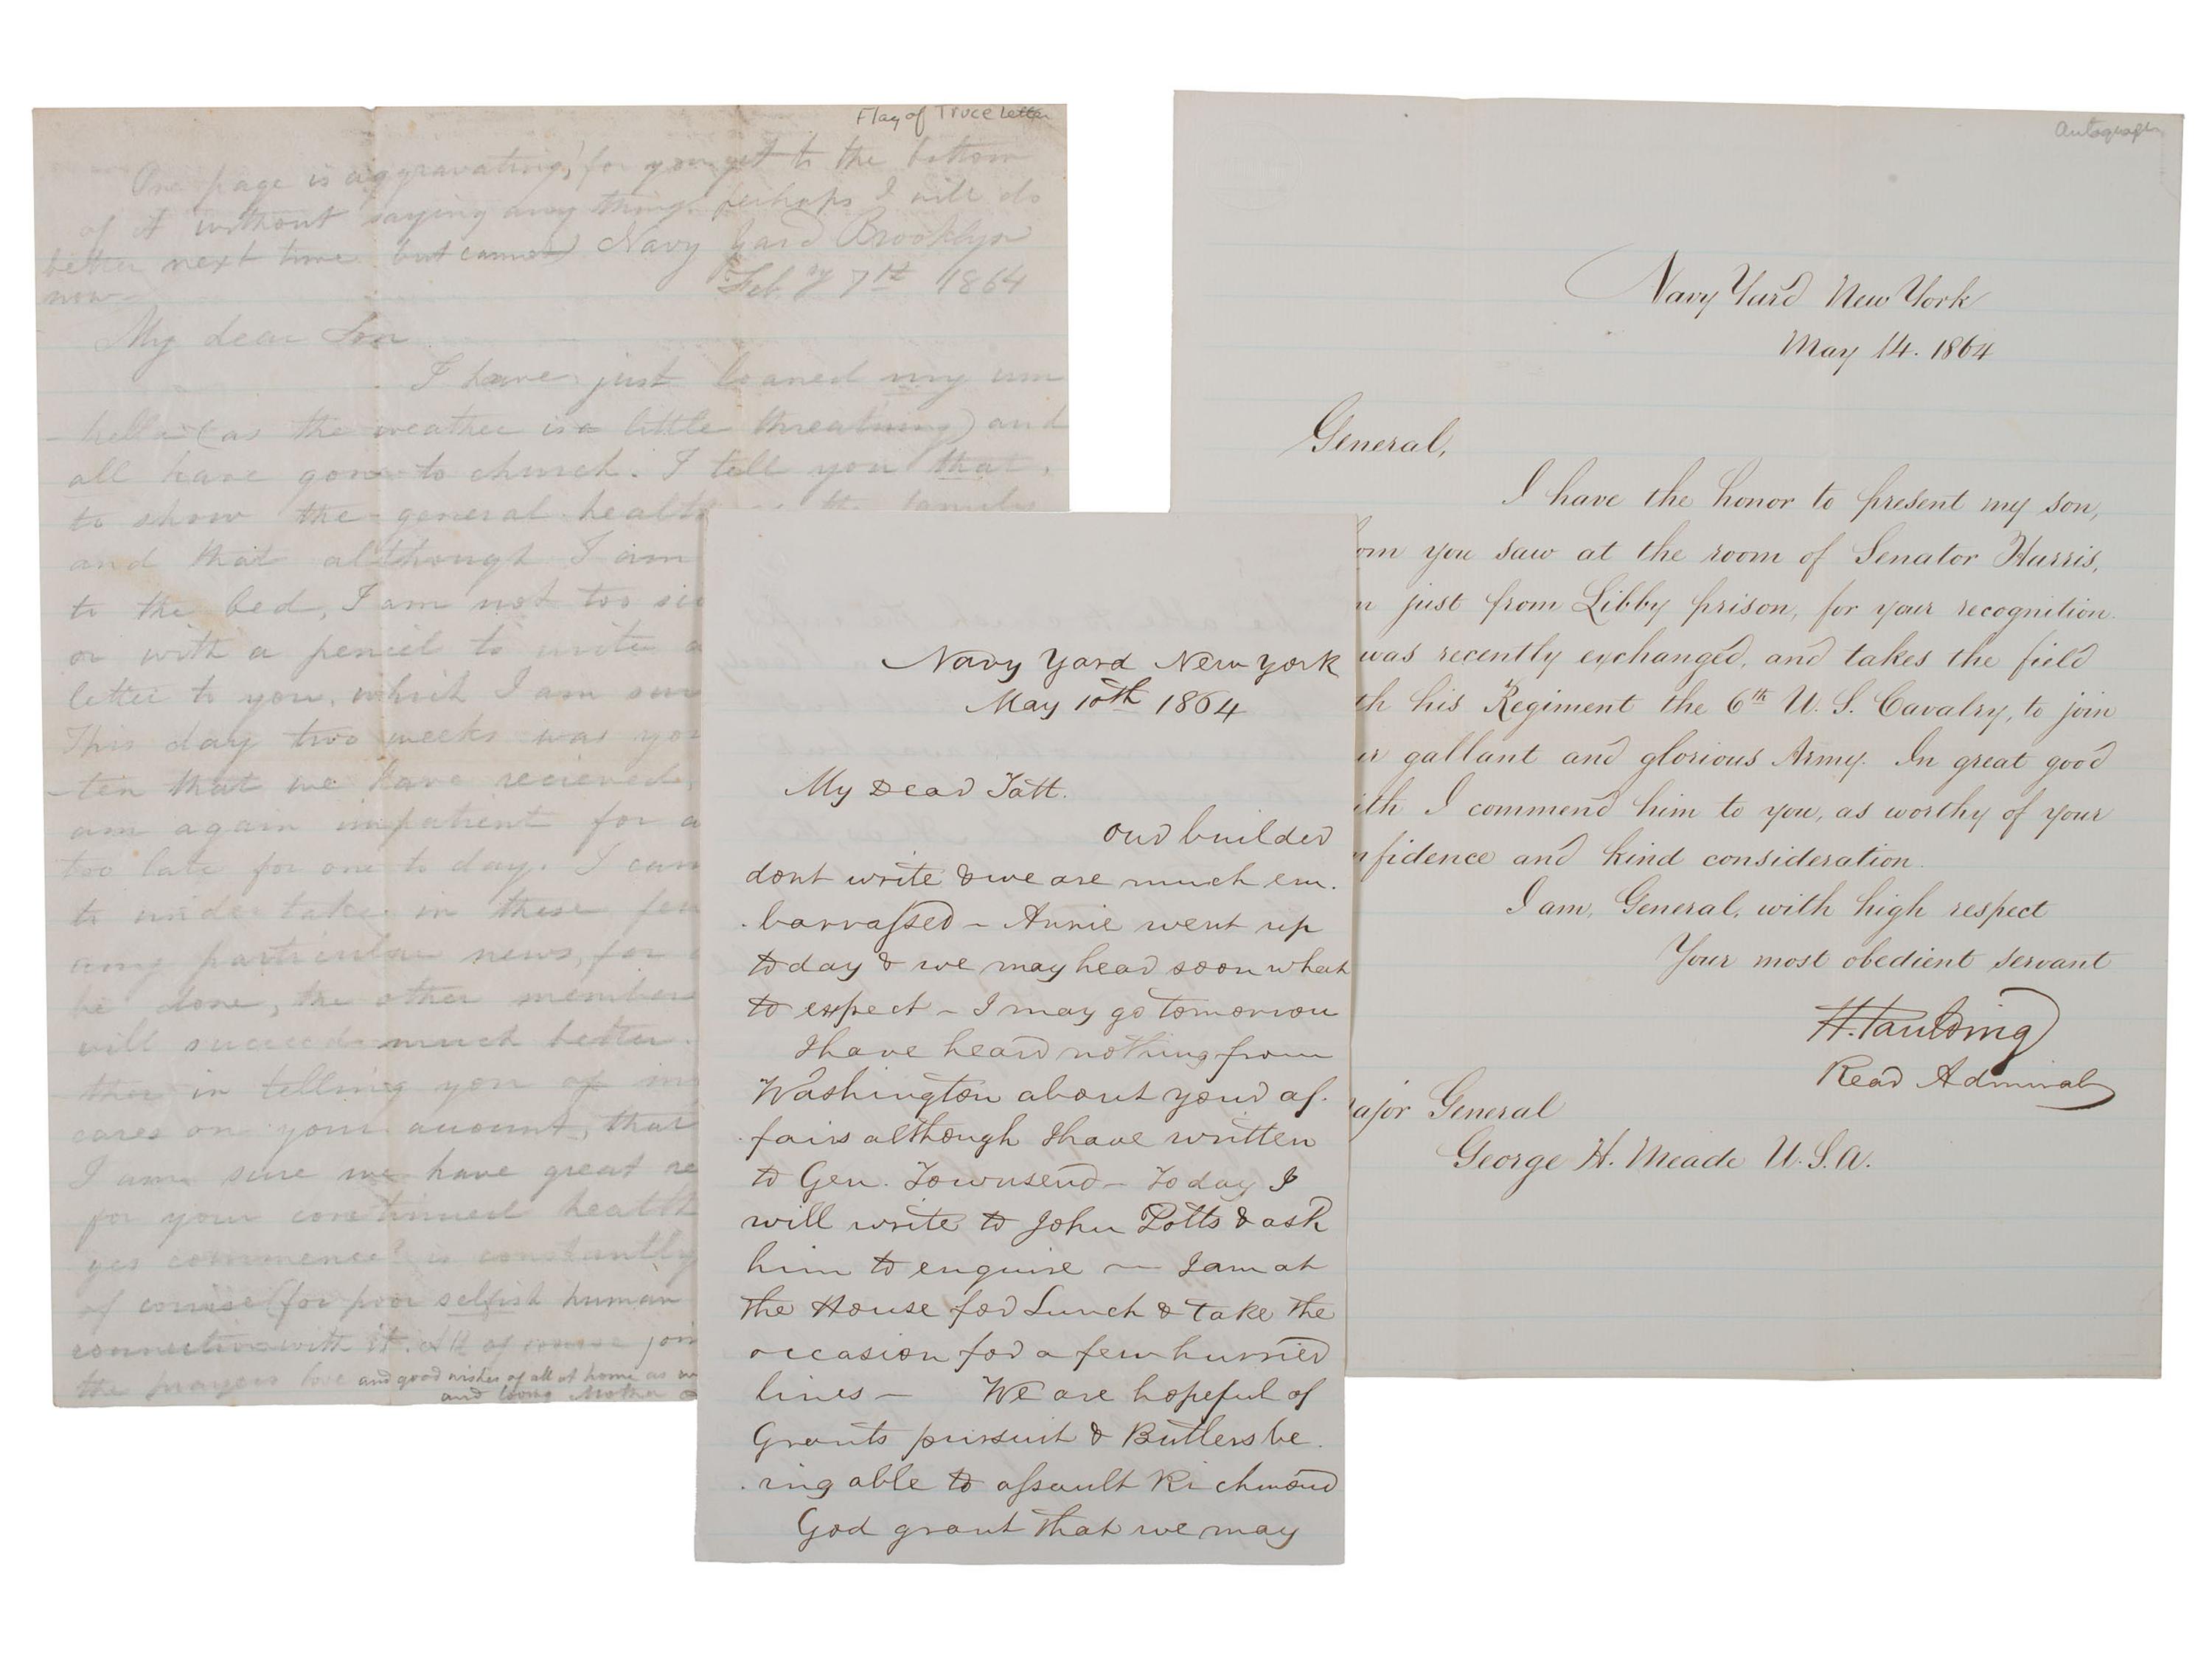 Flag of Truce Letter
One page is aggravating, for you get to the bottom
of it without saying any thing. perhaps I will do
better next time but cannot
now
Navy Yard Brooklyn
Feb'y 7th 1864
My dear Son
I have just loaned my um
- bella (as the weather is a little threatning) and
all have gone to church. I tell you that,
to show the general health the family
and that although I am
to the bed, I am not too
or with a pencil to write a
letter to you, which I am
This day two weeks was
-ten that we have recieved,
am again impatient for a
too late for one to day. I
to undertake in these
any particular news, for
be done, the other member
will succeed much better.
in telling you of
cares on your account, that
I am sure we have great
for your continued health
yes commence? is constantly
of course (for poor selfish human
connection with it. All of course join
the prayers love and good wishes of all at home as
and loving Mother
Navy Yard New York
May 10th 1864
My Dear Tatt.
Our builder
dont write & we are much em.
. barrassed – Annie went up
today & we may hear soon what
to expect – I may go tomorrow
I have heard nothing from
Washington about your af.
. fairs although I have written
to Gen. Townsend – Today I
will write to John Potts & ask
him to enquire — I am at
the House for Lunch & take the
occasion for a few hurried
lines — We are hopeful of
Grants pursuit & Butlers be.
. ing able to assault Richmond
God grant that we may
Autograph
Navy Yard New York
May 14. 1864
General,
I have the honor to present my son,
om you saw at the room of Senator Harris,
n just from Libby prison, for your recognition.
was recently exchanged, and takes the field
th his Regiment the 6th U. S. Cavalry, to join
r gallant and glorious Army. In great good
ith I commend him to you, as worthy of your
nfidence and kind consideration.
I am, General, with high respect
Your most obedient servant
H. Paulding
Rear Admiral
ajor General
George H. Meade U.S.A.